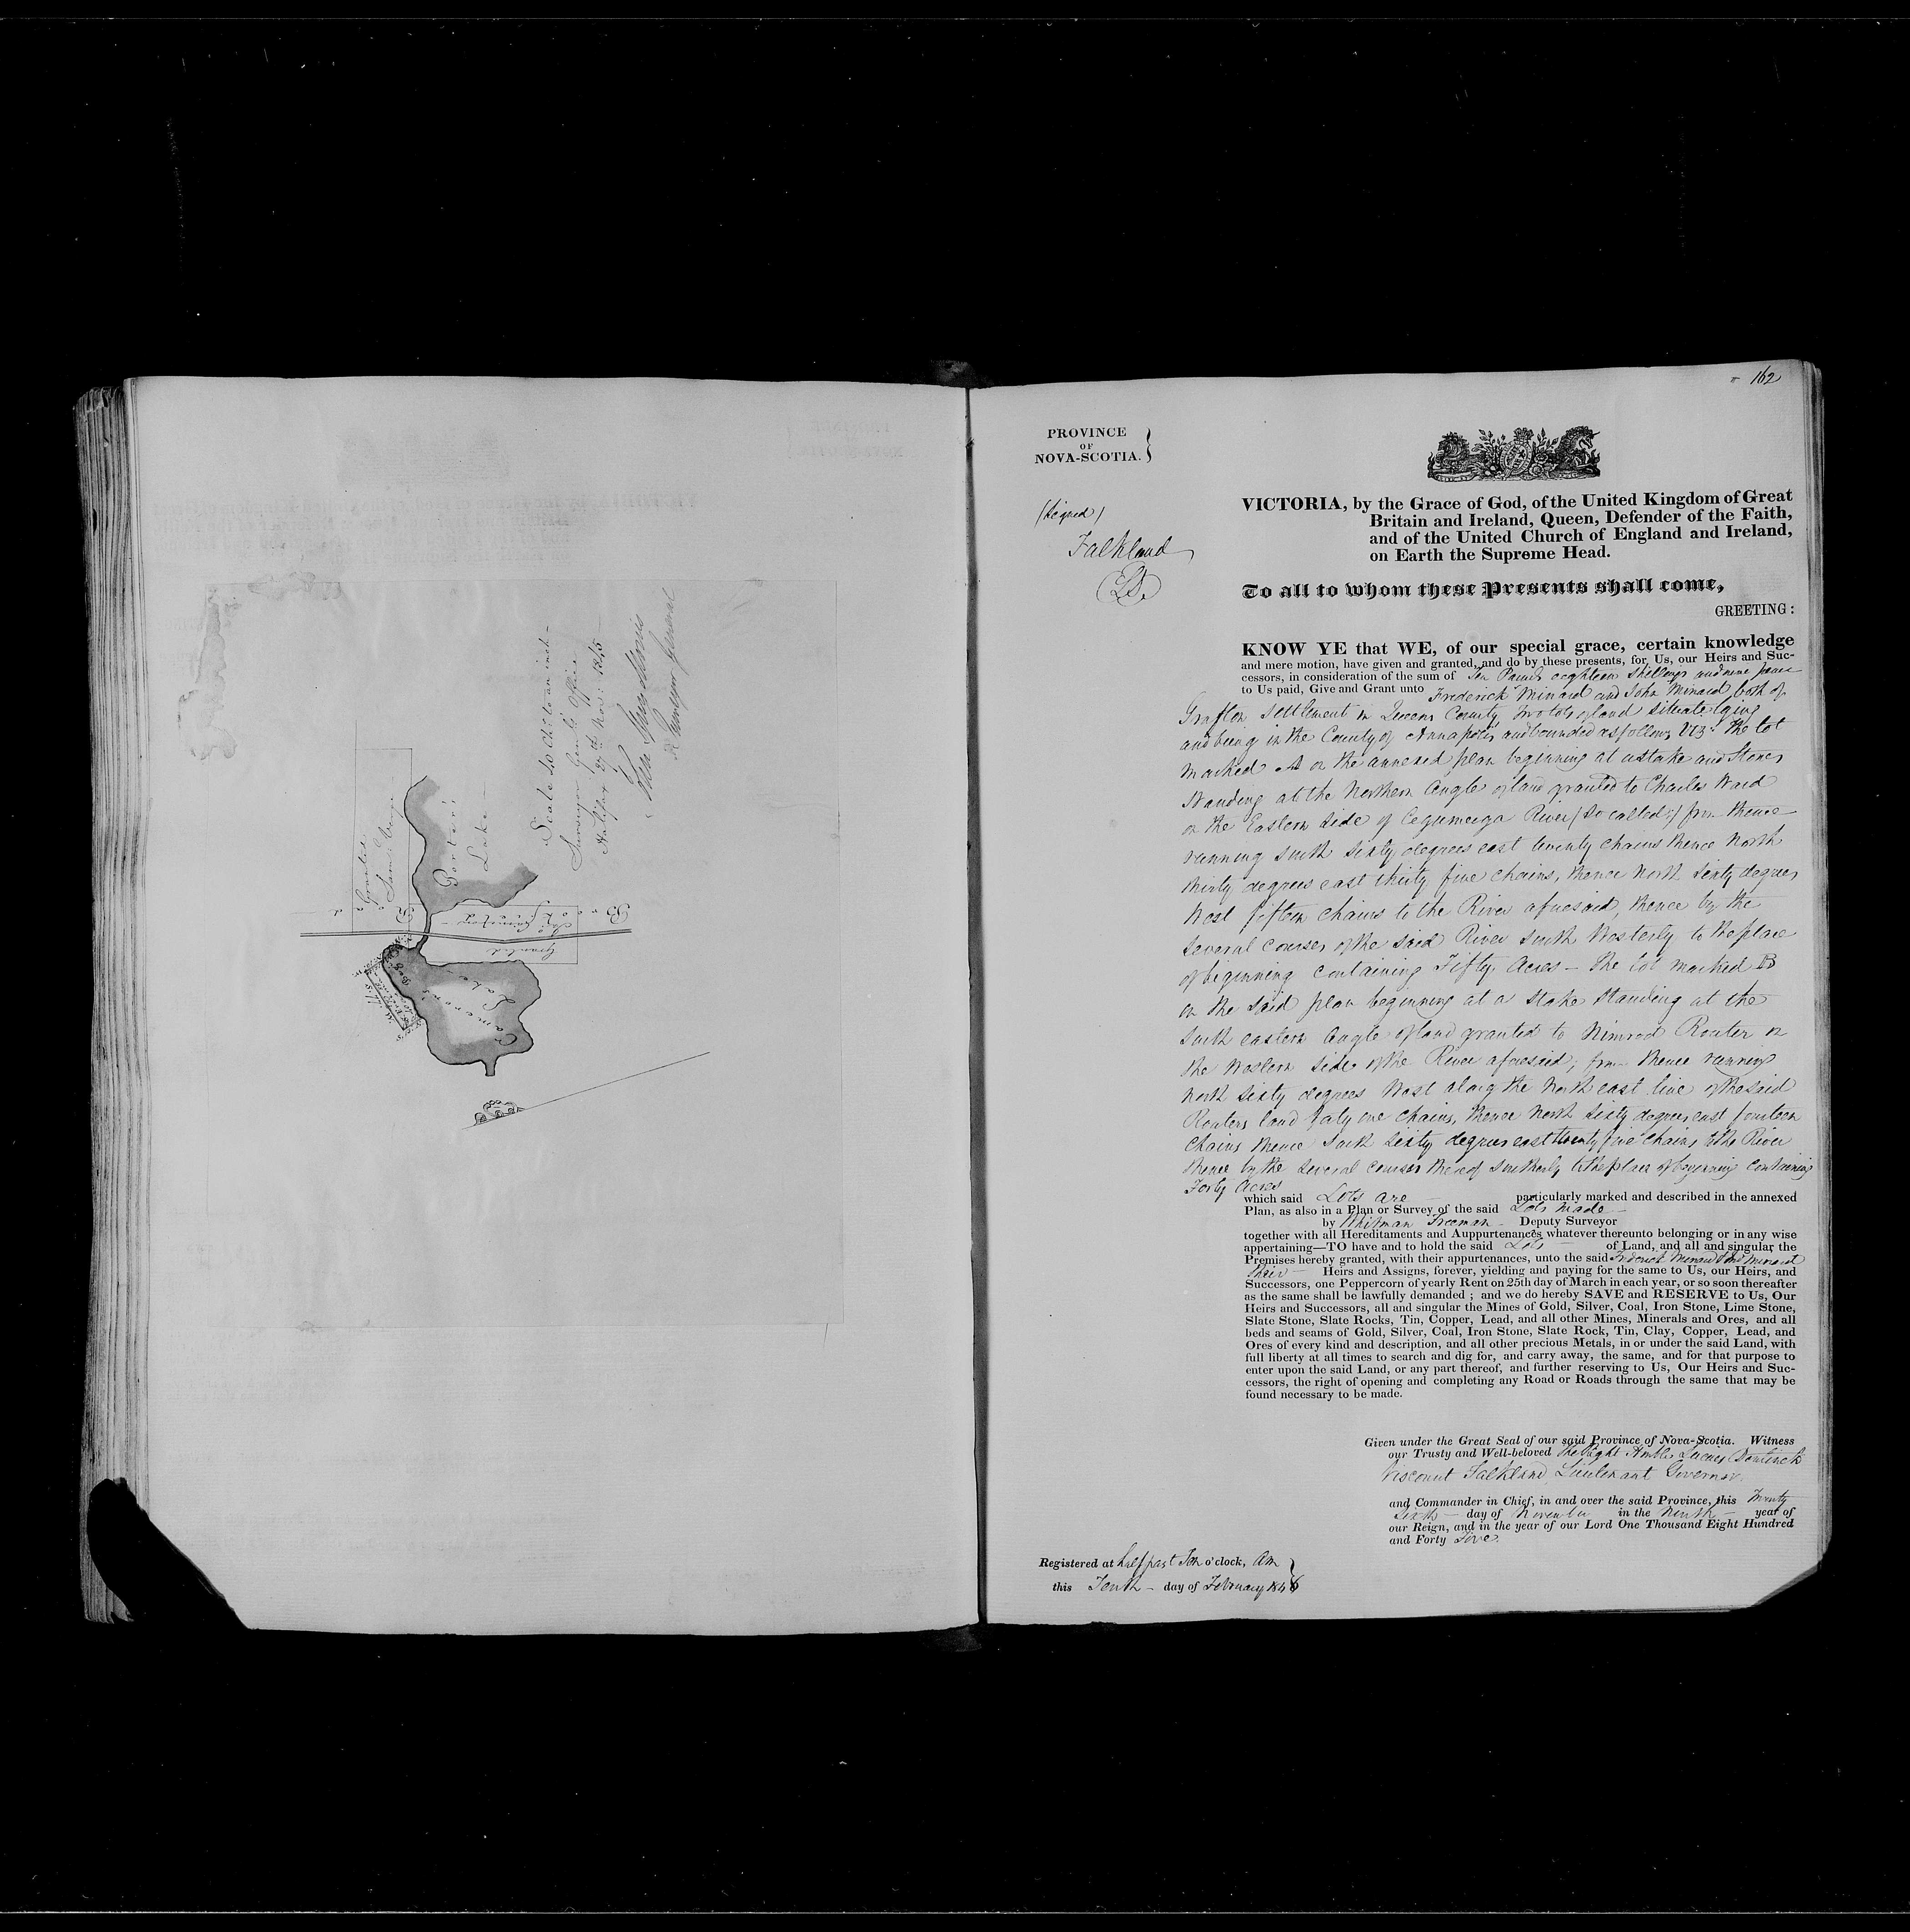 Granted
Saml. 
Porter's
Lake
Scale 40 Chs. to an inch
Surveyor Genl's Office
Halifax 27th Nov: 1845
John Spry Morris
Surveyor General
Road
B
Granted
Camerons
Lake
Bog
Mills
162
PROVINCE
OF
NOVA-SCOTIA.
(Signed)
Falkland
LS.
VICTORIA, by the Grace of God, of the United Kingdom of Great
Britain and Ireland, Queen, Defender of the Faith,
and of the United Church of England and Ireland,
on Earth the Supreme Head.
To all to whom these Presents shall come,
GREETING:
KNOW YE that WE, of our special grace, certain knowledge
and mere motion, have given and granted, and do by these presents, for Us, our Heirs and Suc-
cessors, in consideration of the sum of Ten Pounds eighteen Shillings and nine pence
to Us paid, Give and Grant unto Frederick Minard and John Minard both of
Grafton Settlement in Queens County, two lots of land situate lying
and being in the County of Annapolis and bounded as follows Viz: The lot
marked A on the annexed plan beginning at a stake and Stones
Standing at the Northern Angle of land granted to Charles Ward
on the Eastern Side of Cegumcega River (So called;) from thence
running South Sixty degrees east twenty chains thence North
thirty degrees east thirty five chains, thence North Sixty degrees
West fifteen chains to the River aforesaid, thence by the
Several courses of the said River South Westerly to the place
of beginning containing Fifty Acres — The lot marked B
on the Said plan beginning at a Stake Standing at the
South eastern Angle of land granted to Nimrod Router on
the Western Side of the River aforesaid; from thence running
North Sixty degrees West along the North east line of the said
Routers land forty one chains, thence North Sixty degrees east fourteen
Chains thence South Sixty degrees east twenty five chains to the River
thence by the Several courses thereof Southerly to the place of beginning containing
Forty Acres
which said Lots are — particularly marked and described in the annexed
Plan, as also in a Plan or Survey of the said Lots made —
by Whitman Freeman — Deputy Surveyor
together with all Hereditaments and Auppurtenances whatever thereunto belonging or in any wise
appertaining—TO have and to hold the said Lots — of Land, and all and singular the
Premises hereby granted, with their appurtenances, unto the said Frederick Minard John Minard
their — Heirs and Assigns, forever, yielding and paying for the same to Us, our Heirs, and
Successors, one Peppercorn of yearly Rent on 25th day of March in each year, or so soon thereafter
as the same shall be lawfully demanded ; and we do hereby SAVE and RESERVE to Us, Our
Heirs and Successors, all and singular the Mines of Gold, Silver, Coal, Iron Stone, Lime Stone,
Slate Stone, Slate Rocks, Tin, Copper, Lead, and all other Mines, Minerals and Ores, and all
beds and seams of Gold, Silver, Coal, Iron Stone, Slate Rock, Tin, Clay, Copper, Lead, and
Ores of every kind and description, and all other precious Metals, in or under the said Land, with
full liberty at all times to search and dig for, and carry away, the same, and for that purpose to
enter upon the said Land, or any part thereof, and further reserving to Us, Our Heirs and Suc-
cessors, the right of opening and completing any Road or Roads through the same that may be
found necessary to be made.
Given under the Great Seal of our said Province of Nova-Scotia. Witness
our Trusty and Well-beloved The Right Honble Lucius Bentinck
Viscount Falkland Lieutenant Governor
and Commander in Chief, in and over the said Province, this Twenty
Sixth — day of November in the Ninth — year of
our Reign, and in the year of our Lord One Thousand Eight Hundred
and Forty Five.
Registered at half past Ten o'clock, Am
this Tenth — day of February 1846